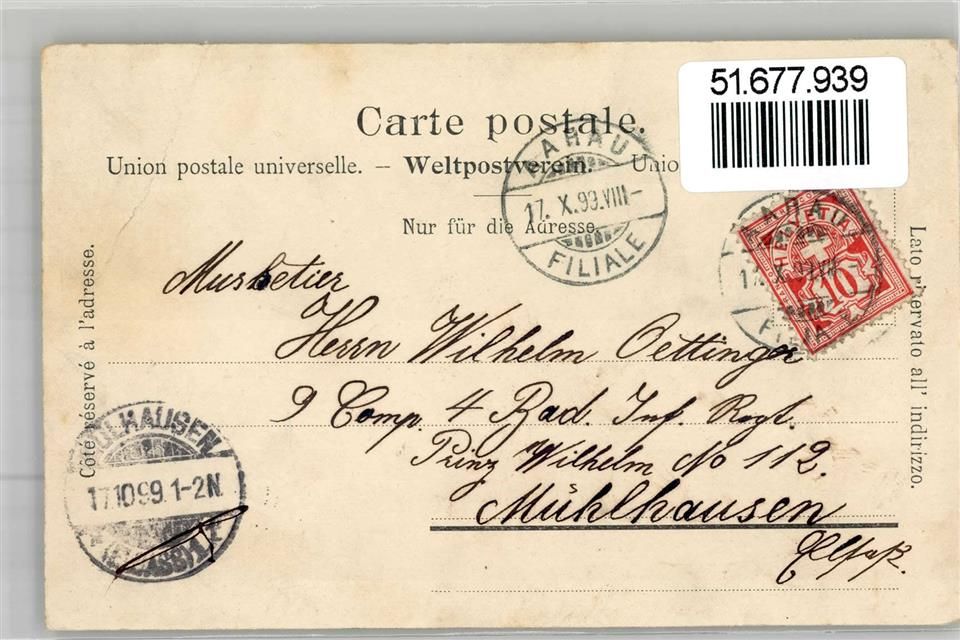 51.677.939
Carte postale.
Union postale universelle. — Weltpostverein. Unio
Nur für die Adresse.
AARAU
17. X.99.VIII–
FILIALE
HELVETIA
10
Côté réservé à l'adresse.
Lato riservato all' indirizzo.
Musketier
Herrn Wilhelm Oettinger
9 Comp. 4 Bad. Inf. Regt.
Prinz Wilhelm No 112.
Mühlhausen
Elsaß.
MÜLHAUSEN
17.10.99.1-2N.
(ELSASS) 1